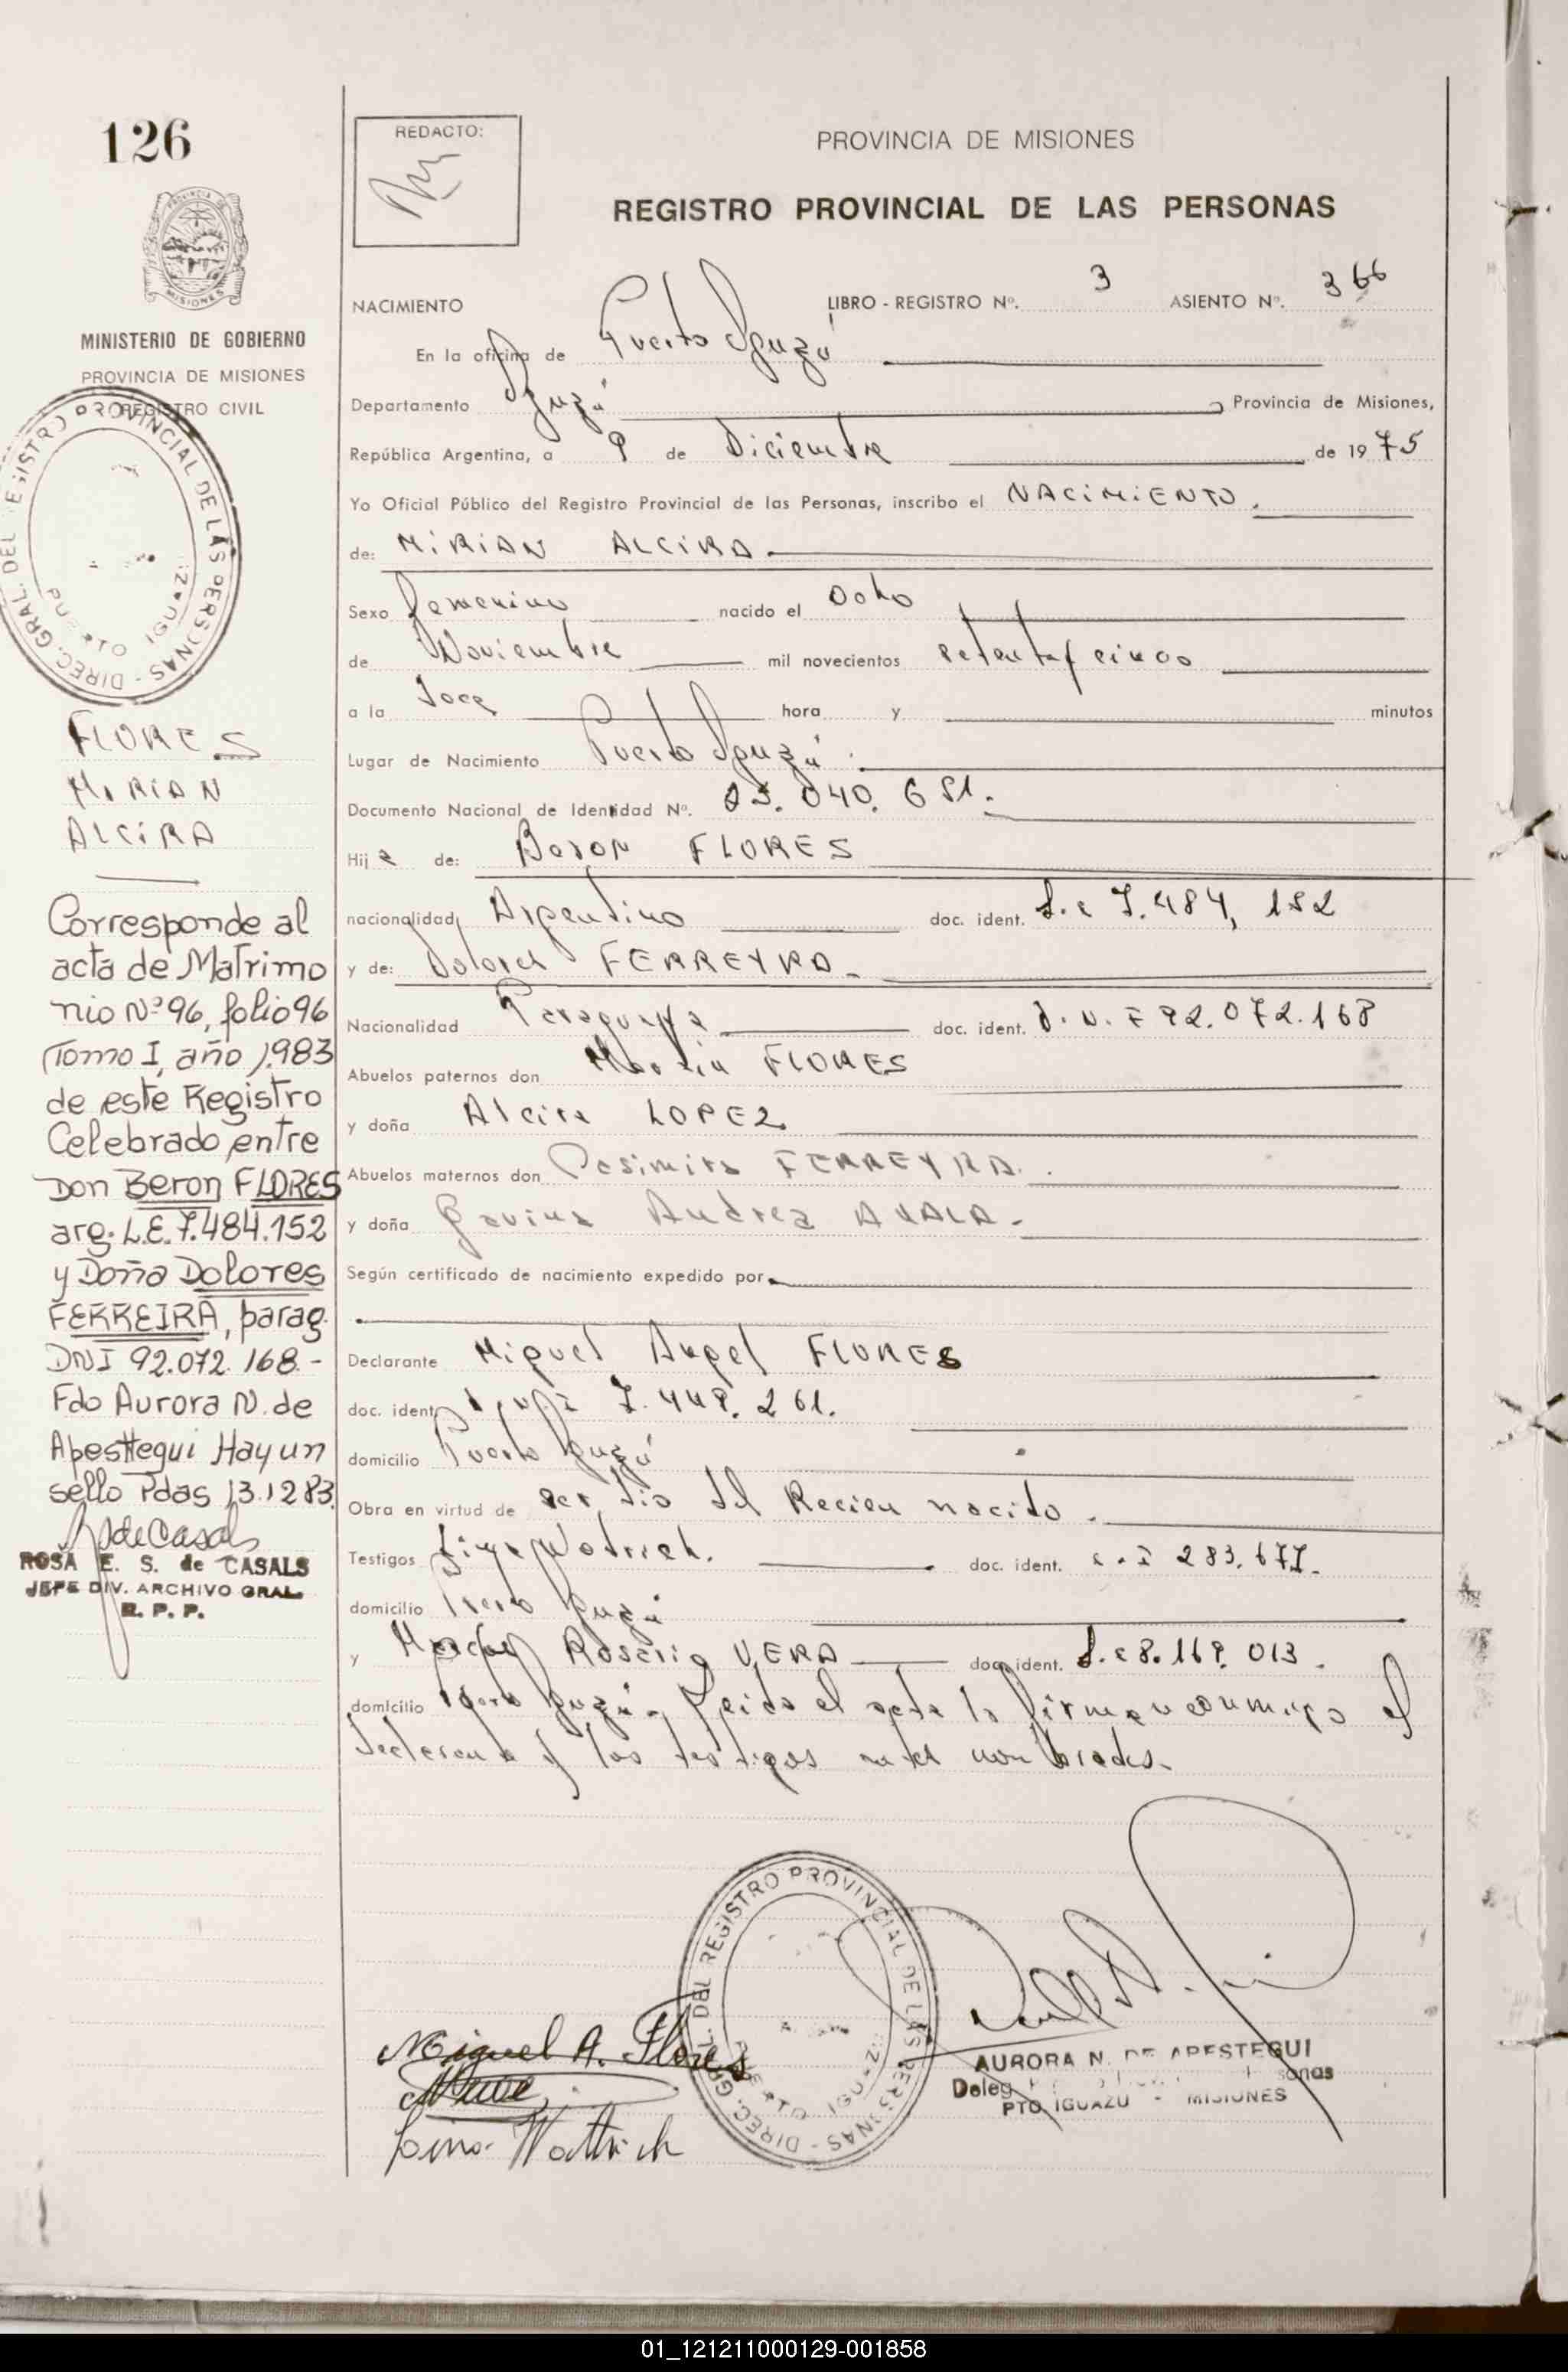 126
REDACTO:
PROVINCIA DE MISIONES
REGISTRO PROVINCIAL DE LAS PERSONAS
PROVINCIA DE MISIONES
MINISTERIO DE GOBIERNO
PROVINCIA DE MISIONES
REGISTRO CIVIL
DIREC. GRAL. DEL REGISTRO PROVINCIAL DE LAS PERSONAS
PUERTO IGUAZU
FLORES
MIRIAN
ALCIRA
Corresponde al
acta de Matrimo
nio Nº 96, folio 96
(Tomo I, año 1.983
de este Registro
Celebrado entre
Don Beron FLORES
arg. L.E. 7.484.152
y Doña Dolores
FERREIRA, parag.
DNI 92.072.168.-
Fdo Aurora N. de
Apesttegui Hay un
sello Pdas 13.12 83.
ROSA E. S. de CASALS
JEFE DIV. ARCHIVO GRAL.
R. P. P.
NACIMIENTO LIBRO - REGISTRO Nº. 3 ASIENTO Nº. 366
En la oficina de Puerto Iguazú
Departamento Iguazú Provincia de Misiones,
República Argentina, a 9 de Diciembre de 1975
Yo Oficial Público del Registro Provincial de las Personas, inscribo el NACIMIENTO.
de: MIRIAN ALCIRA
Sexo femenino nacido el Ocho
de Noviembre mil novecientos setenta y cinco
a la doce hora y minutos
Lugar de Nacimiento Puerto Iguazú.
Documento Nacional de Identidad Nº. .040.651.
Hija de: Beron FLORES
nacionalidad Argentino doc. ident. L.E 7.484,152
y de: Dolores FERREYRA
Nacionalidad Paraguaya doc. ident. D.N.I 92.072.168
Abuelos paternos don FLORES
y doña Alcira LOPEZ
Abuelos maternos don Casimiro FERREYRA.
y doña Andrea AYALA-
Según certificado de nacimiento expedido por
Declarante Miguel Angel FLORES
doc. ident. 7.449.261.
domicilio Puerto Iguazú
Obra en virtud de ser tio del Recien nacido.
Testigos Wottrich. doc. ident. C.I 283.677.
domicilio Puerto Iguazú
y Rosario VERA doc. ident. L.E 8.169.013.
domicilio Puerto Iguazú. Leida el acta la firman conmigo el
declarante y los testigos antes nombrados.
DIREC. GRAL. DEL REGISTRO PROVINCIAL DE LAS PERSONAS
PUERTO IGUAZU
Miguel A. Flores
Wottrich
AURORA N. DE APESTEGUI
Deleg. sonas
PTO. IGUAZU - MISIONES
01_121211000129-001858